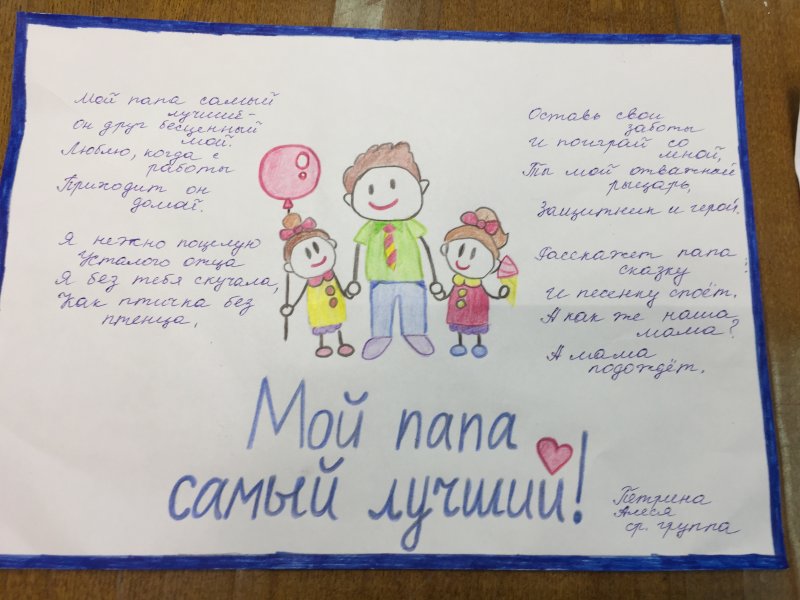 Мой папа самый
лучший -
Он друг бесценный
мой.
Люблю, когда с
работы
Приходит он
домой.
Я нежно поцелую
Усталого отца
Я без тебя скучала,
Как птичка без
птенца.
Оставь свои
заботы
И поиграй со
мной,
Ты мой отважный
рыцарь,
Защитник и герой.
Расскажет папа
сказку
И песенку споёт.
А как же наша
мама?
А мама
подождёт.
Мой папа
самый лучший!
Петрина
Алеся
ср. группа